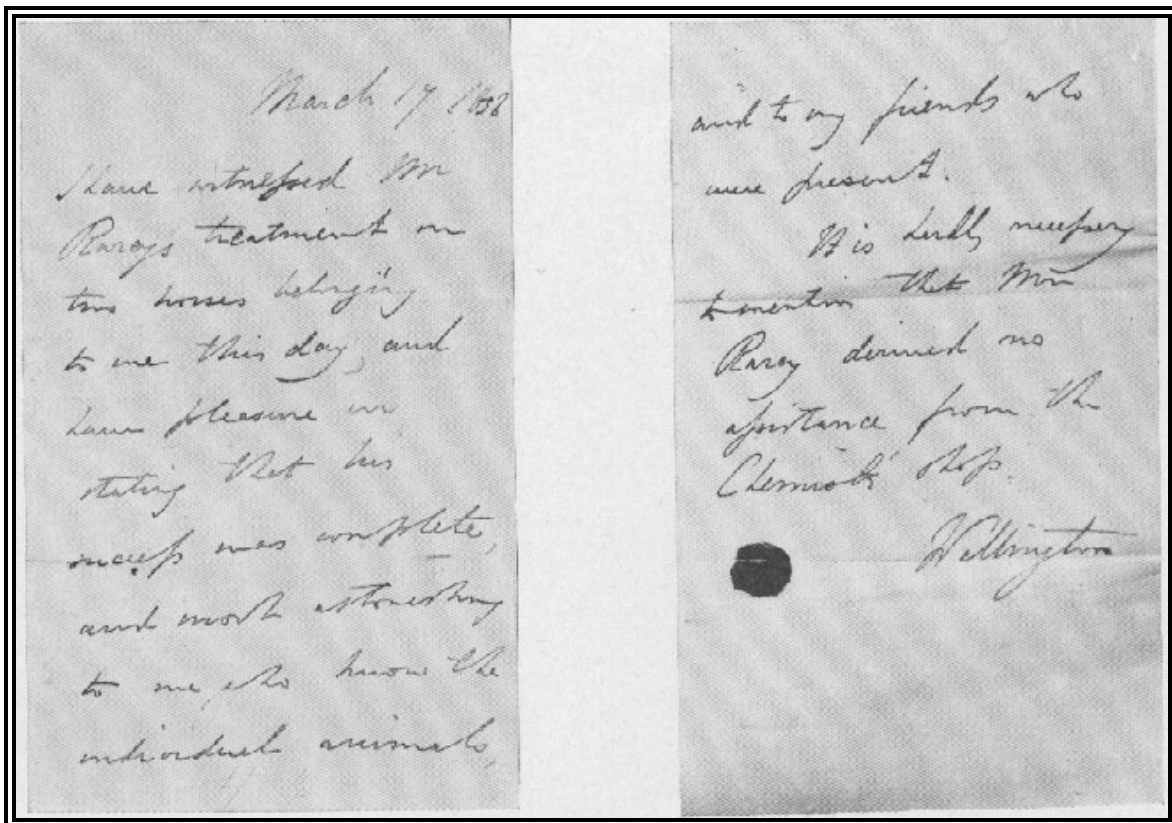 March 17 1858
I have witnessed Mr
Rareys treatment on
two horses belonging
to me this day, and
have pleasure in
stating that his
success was complete,
and most astonishing
to me, who know the
individual animals,
and to my friends who
were present.
It is hardly necessary
to mention that Mr
Rarey derived no
assistance from the
Chemists' shop.
Wellington